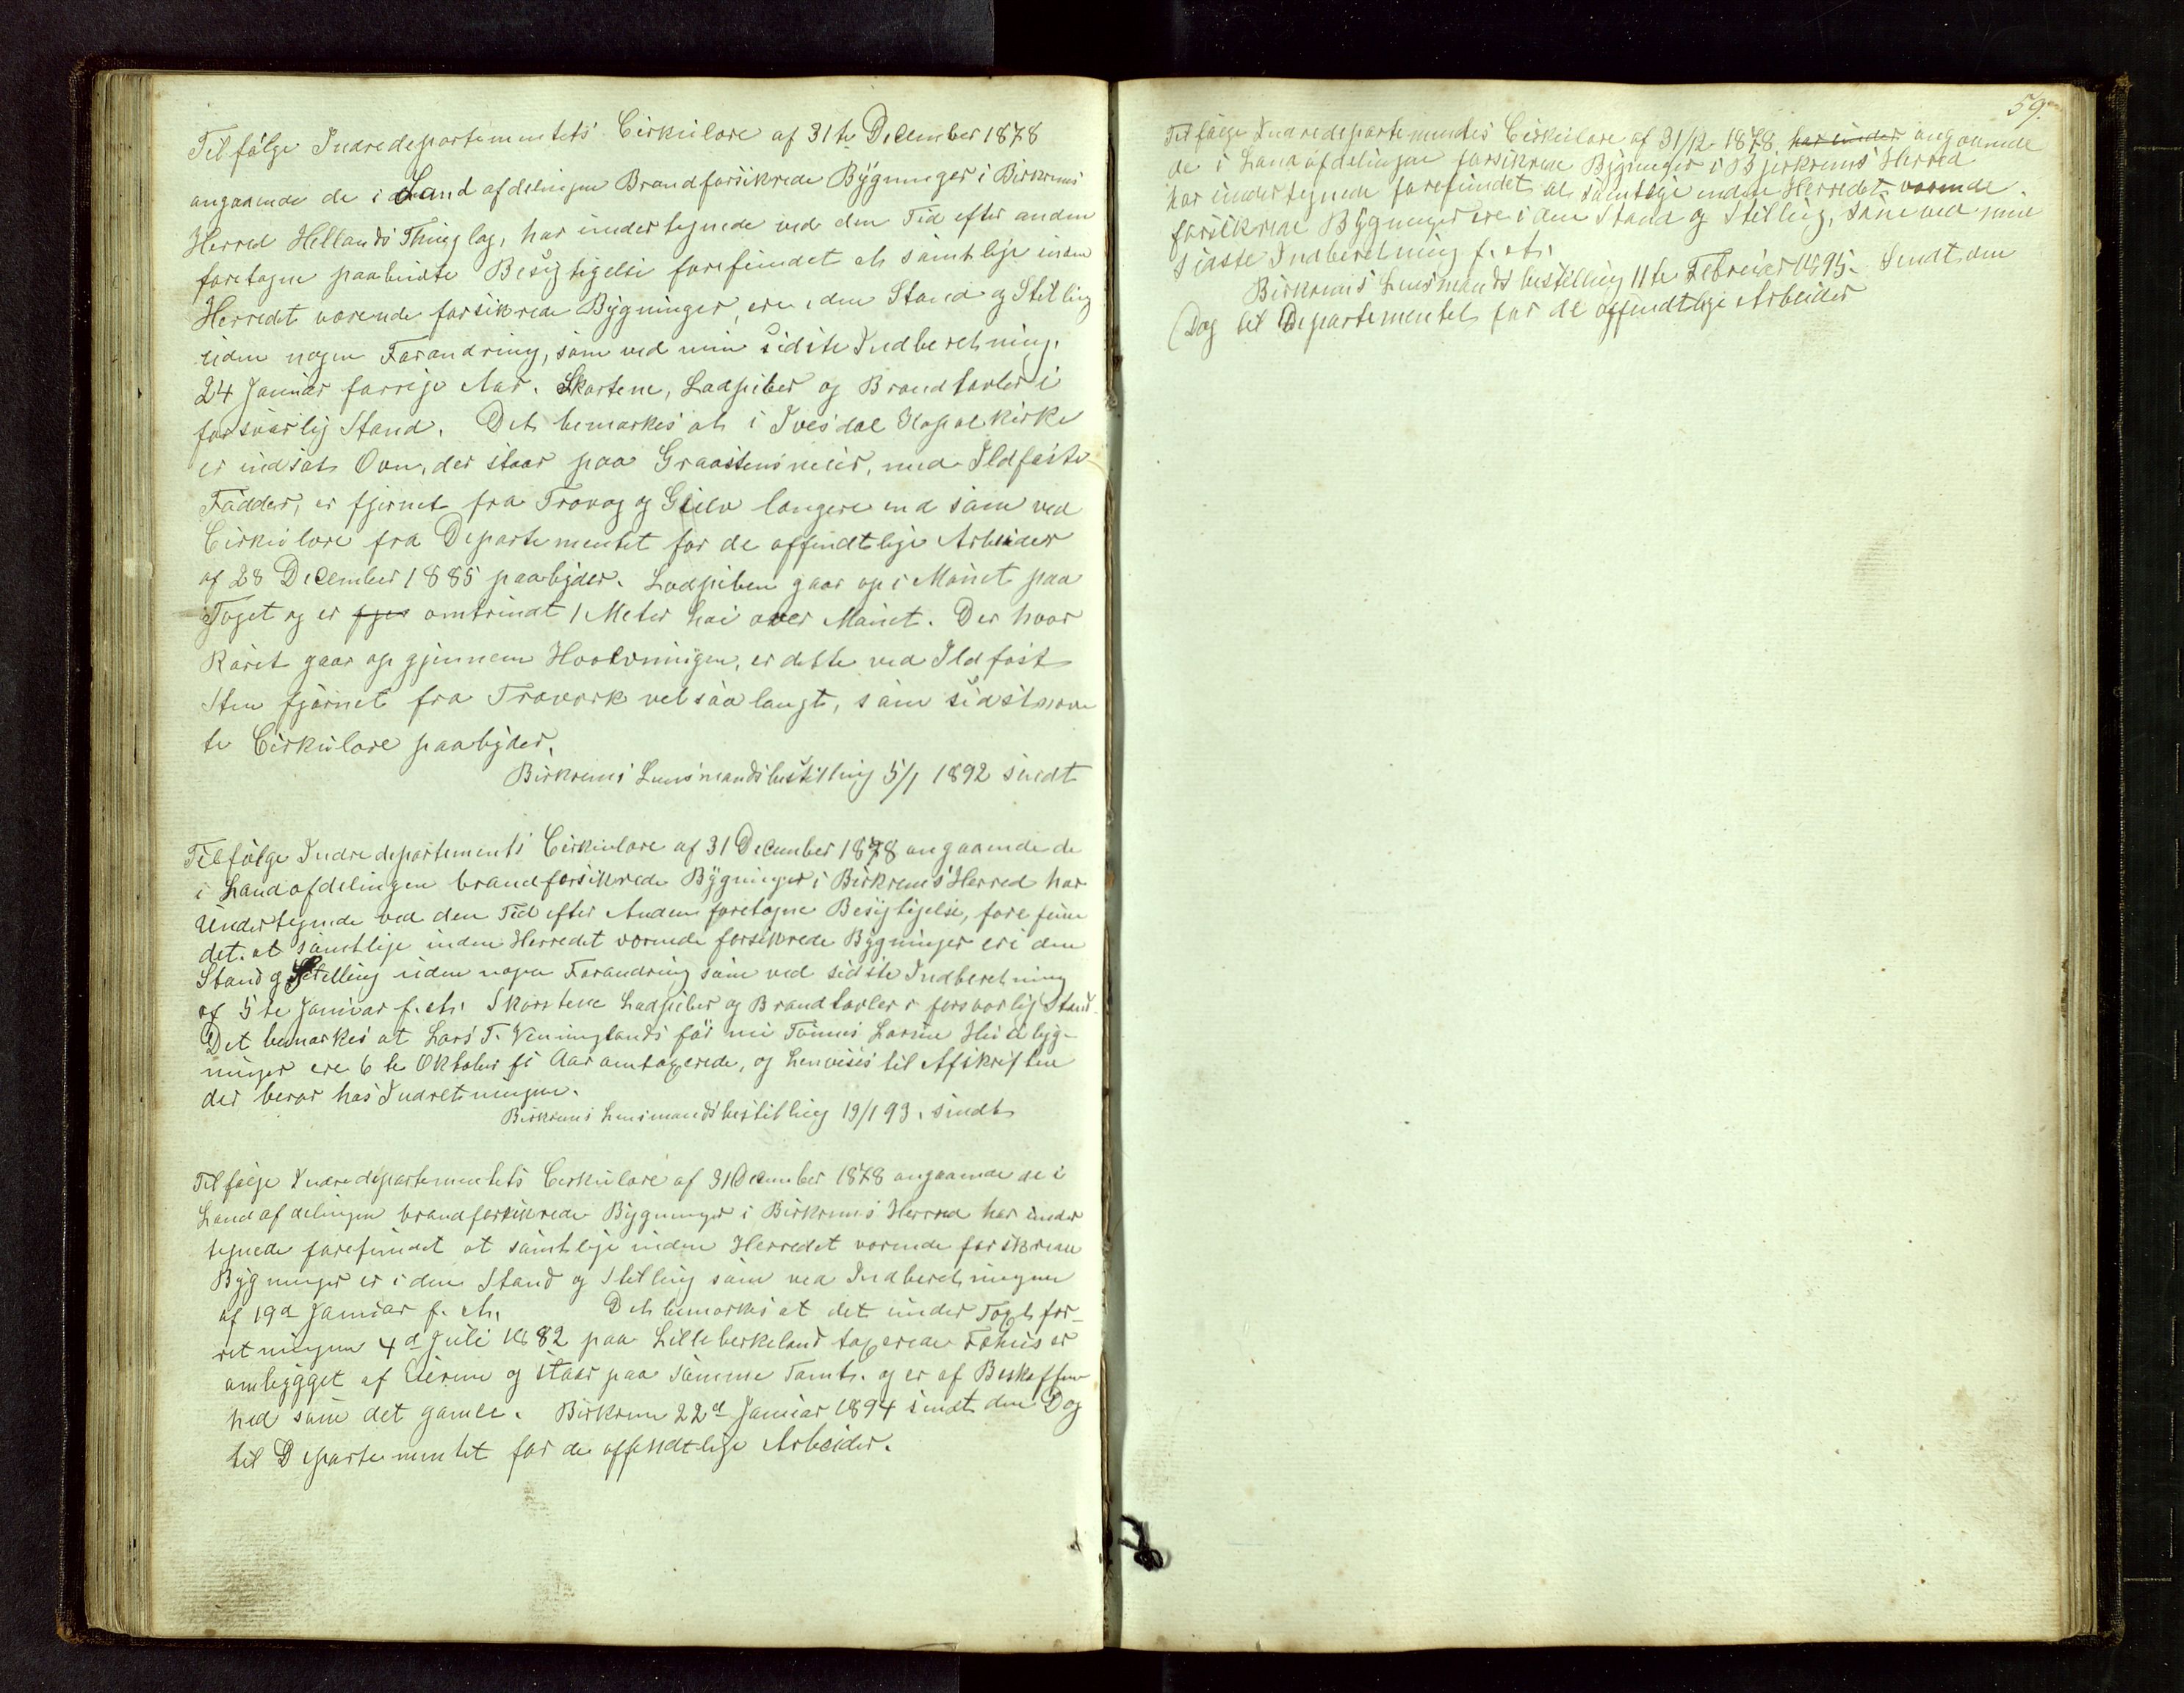 Tilfölge Indredepartementets Cirkulære af 31te December 1878
angaaende de i Landafdelingen Brandforsikrede Bygninger i Birkrems
Herred Hellands Thinglag, har undertegnede ved den Tid efter anden
foretagne paabudte Besigtigelse forefundet at samtlige inden
Herredet værende forsikrede Bygninger, ere i den Stand og Stilling
uden nogen Forandring, som ved min sidste Indberetning.
24 Januar forrige Aar. Skorstene, Ladpiber og Brandtavler i
forsvarlig Stand. Det bemærkes at i Ivesdal Kapelkirke
er indsat Ovn, der staar paa Graastensmur, med Ildfaste
Fødder, er fjernet fra Trævæg og Gulv længere end som ved
Cirkulære fra Departementet for de offendtlige Arbeider
af 28 December 1885 paabyder. Ladpiben gaar op i Mönet paa
Taget og er fjer omtrindt 1 Meter höi over Mönet. Der hvor
Röret gaar op gjennem Hvælvningen, er dette ved Ildfast
Sten fjernet fra Træværk vel saa langt, som sidstnævn
te Cirkulære paabyder.
Birkrems Lensmandsbestilling 5/1 1892 sendt
Tilfölge Indredepartements Cirkulære af 31 December 1878 angaaende de
i Landafdelingen brandforsikrede Bygninger i Birkrems Herred har
Undertegnede ved den Tid efter Anden foretagne Besigtigelse, forefun
det. at samtlige inden Herredet værende forsikrede Bygninger er i den
Stand og Stelling uden nogen Forandring som ved sidste Indberetning
af 5te Januar f. A. Skorstene Ladpiber og Brandtavler i forsvarlig Stand.
Det bemærkes at Lars T. Veninglands før nu Tönnes Larsen Husebyg-
ninger ere 6te Oktober f. Aar omtaxerede, og henvises til Afskriften
der beror hos Indretningen.
Birkrems Lensmandsbestilling 19/1 93. sendt
Tilfölge Indredepartementets Cirkulære af 31 December 1878 angaaende de i
Landafdelingen brandforsikrede Bygninger i Birkrems Herred har under
tegnede forefundet at samtlige inden Herredet værende forsikrede
Bygninger er i den Stand og Stilling som ved Indberetningen
af 19d Januar f. A. Det bemærkes at det under Taxtfor-
retningen 4d Juli 1882 paa Lilleberkeland taxerede Fæhus er
ombygget af Eieren og staar paa samme Tomt. og er af Beskaffen
hed som det gamle. Birkrem 22d Januar 1894 sendt den Dag
til Departementet for de offendtlige Arbeider.
59.
Tilfölge Indredepartementets Cirkulære af 31/12 1878 har under angaaende
de i Landafdelingen forsikrede Bygninger i Bjerkrems Herred
har undertegnede forefundet at samtlige inden Herredet værende
forsikrede Bygninger ere i den Stand og Stilling, som ved min
sidste Indberetning f. A.
Birkrems Lensmandsbestilling 11te Februar 1895. Sendt den
Dag til Departementet for de offendtlige Arbeider